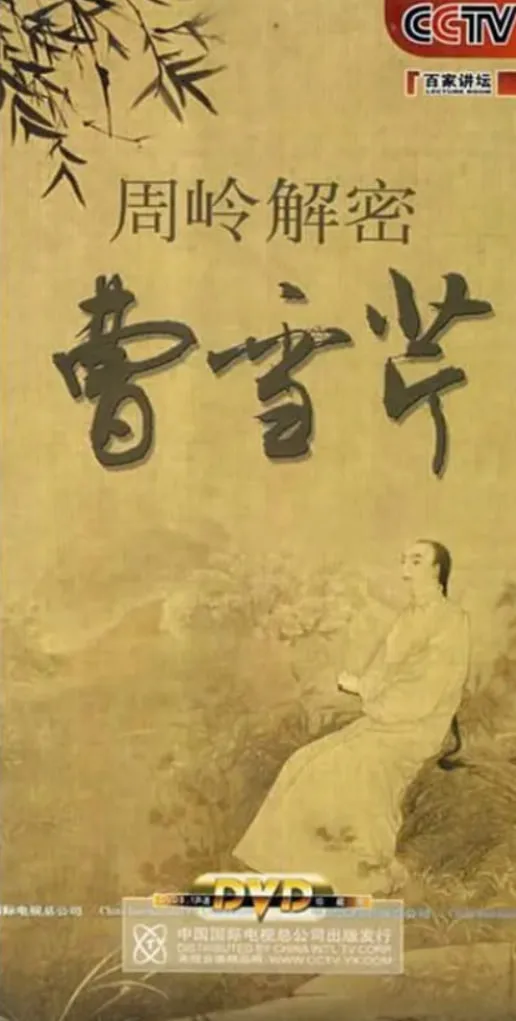 CCTV
百家讲坛
LECTURE ROOM
周岭解密
曹雪芹
DVD
国际电视总公司
中国国际电视总公司出版发行
DISTRIBUTED BY CHINA INT'L TV CORP
WWW.CCTV-YX.COM